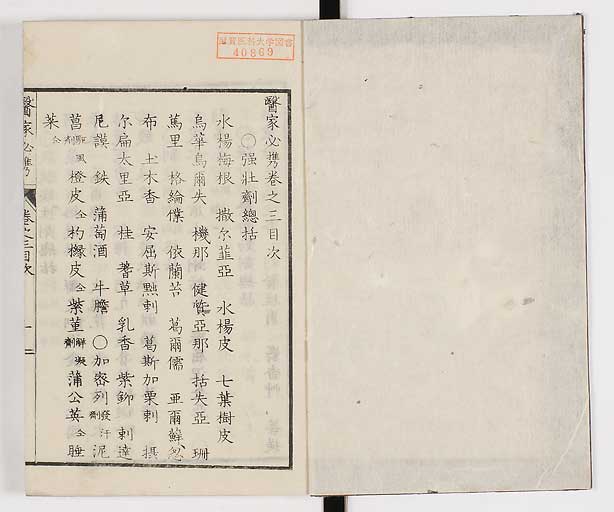 滋賀医科大学図書
40869
醫家必携巻之三目次
〇强壯劑總括
水楊梅根 撒尔韮亞 水楊皮 七葉樹皮
烏華烏爾失 機那 健質亞那 括失亞 珊
篤里 格綸僕 依蘭苔 葛爾儒 亜爾鮮忽
布 土木香 安屈斯㸃剌 葛斯加栗剌 摂
尔扁太里亞 桂 蓍草 乳香 紫鉚 剌達
尼謨 鉄 蒲萄酒 牛膽 〇加密列發汗劑 泥
菖驅風劑 橙皮仝 枸櫞皮仝 紫菫解凝劑 蒲公英仝 睡
菜仝
醫家必携 巻之三目次 一